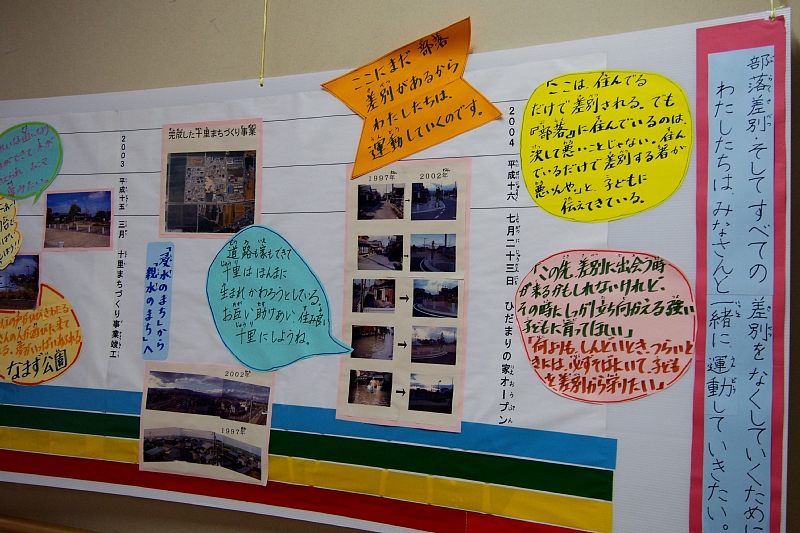 部落差別、そしてすべての差別をなくしていくために
わたしたちは、みなさんと一緒に運動していきたい。
ここにまだ部落
差別があるから
わたしたちは、
運動していくのです。
「ここは、住んでる
だけで差別される。でも
『部落』に住んでいるのは、
決して悪いことじゃない。住ん
でいるだけで差別する者が
悪いんや」と、子どもに
伝えてきている。
「この先、差別に出会う時
が来るかもしれないけれど、
その時にしっかり立ち向かえる強い
子どもに育ってほしい」
「何よりも、しんどいとき、つらいと
きには、必ずそばにいて、子ども
を差別から守りたい。」
2004 平成十六 七月二十三日 ひだまりの家オープン
1997年 2002年
道路も家もできて
千里はほんまに
生まれかわろうとしている。
お互い助けあい住み良い
千里にしようね。
完成した十里まちづくり事業
「浸水のまち」から
「親水のまち」へ
2002年
1997年
2003 平成十五 三月 十里まちづくり事業竣工
なまず公園